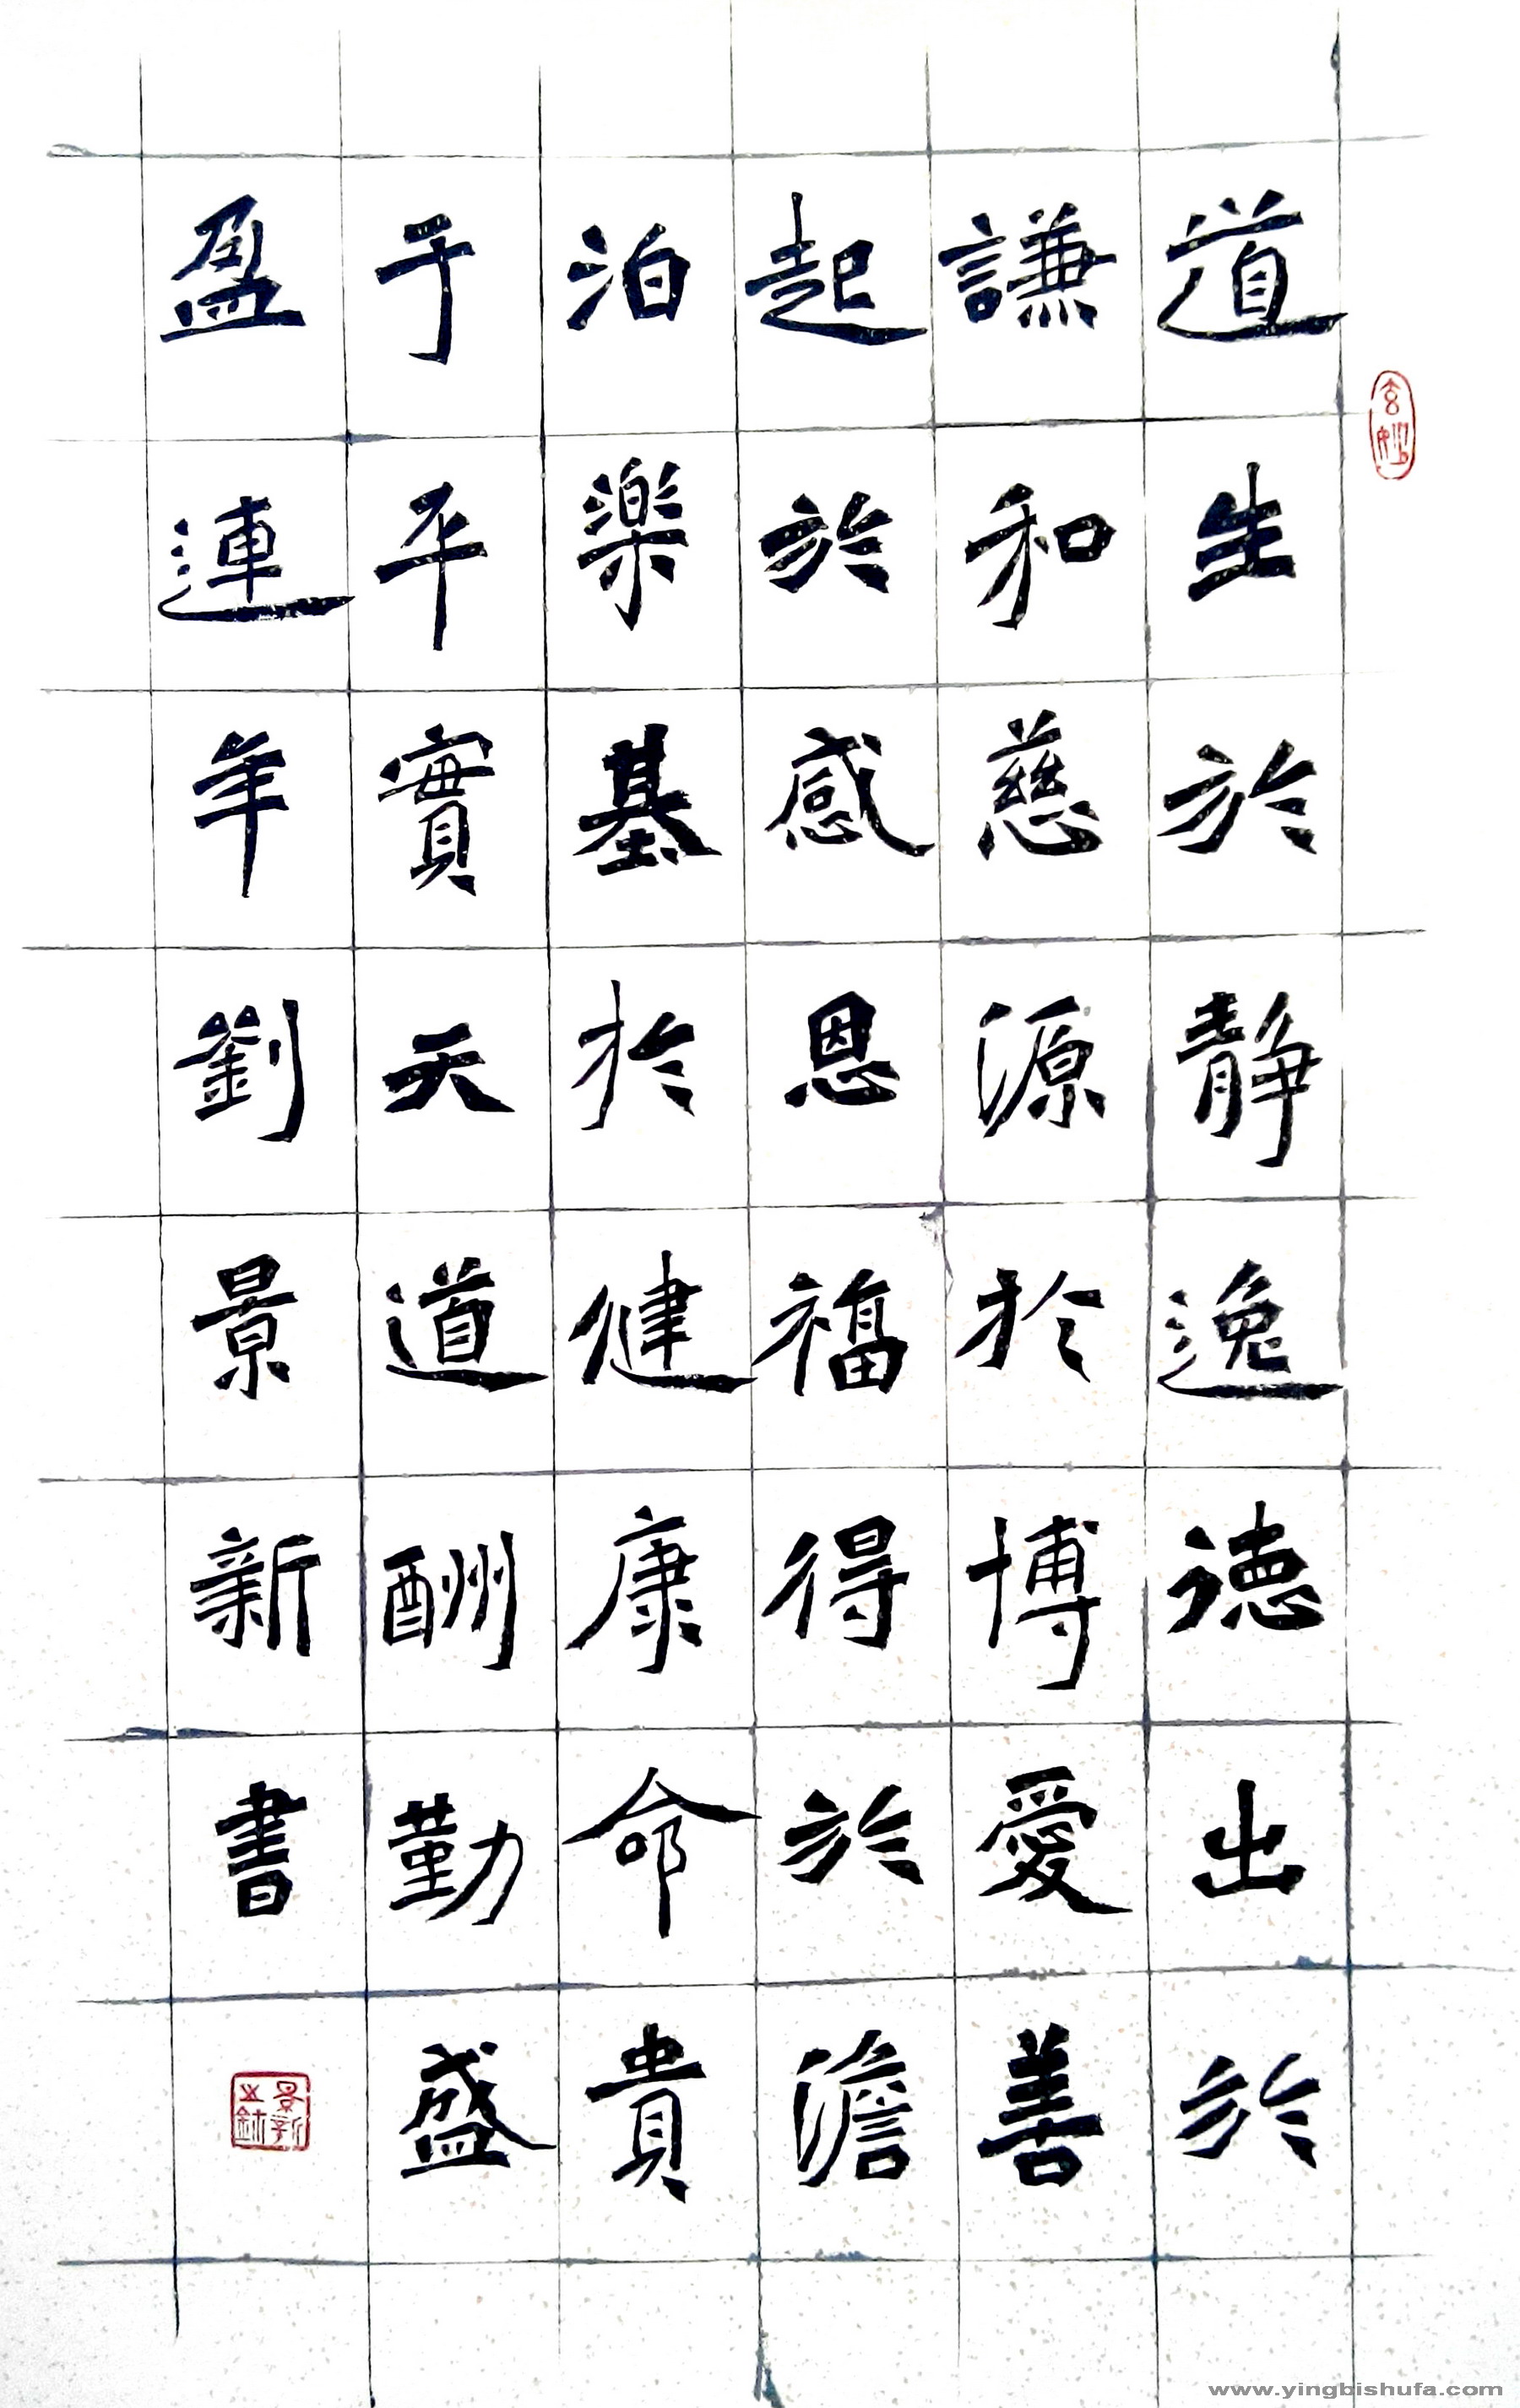 道生於静逸德出於
謙和慈源於博愛善
起於感恩福得於澹
泊樂基於健康命貴
于平實天道酬勤盛
盈連年劉景新書
玄妙
www.yingbishufa.com